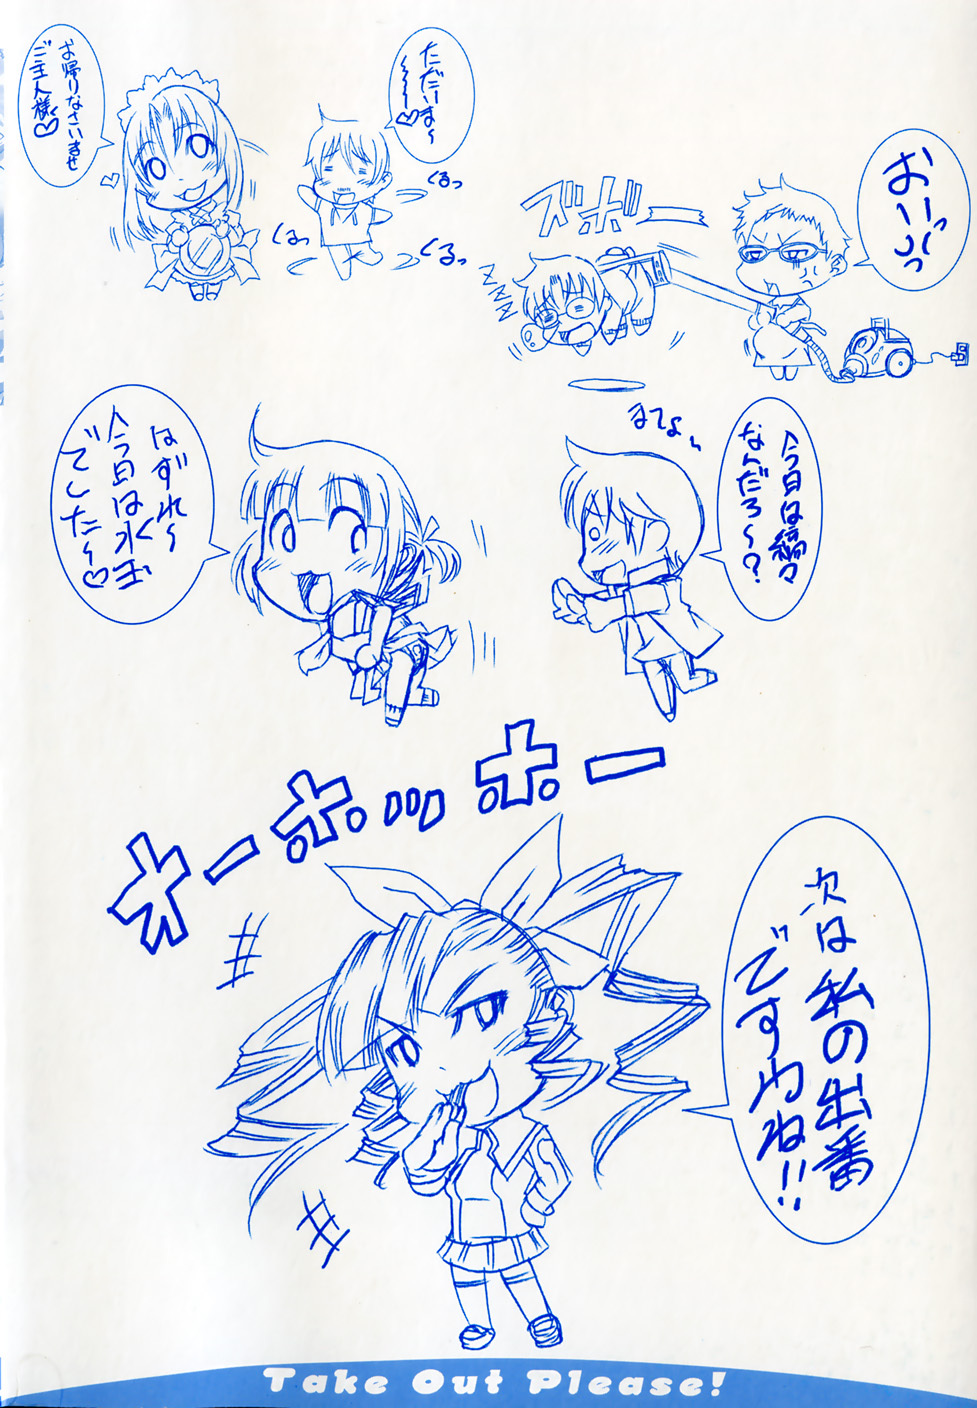 ただいま〜
〜〜〜♡
お帰りなさいませ
ご主人様♡
くるっ
くるっ
くるっ
おいっっ
ズボーー
ZZZZ
今日は縞々
なんだろ〜？
まてよぃ
はずれ〜
今日は水玉
でした〜♡
オーホッホー
次は私の出番
ですわね!!
Take Out Please!